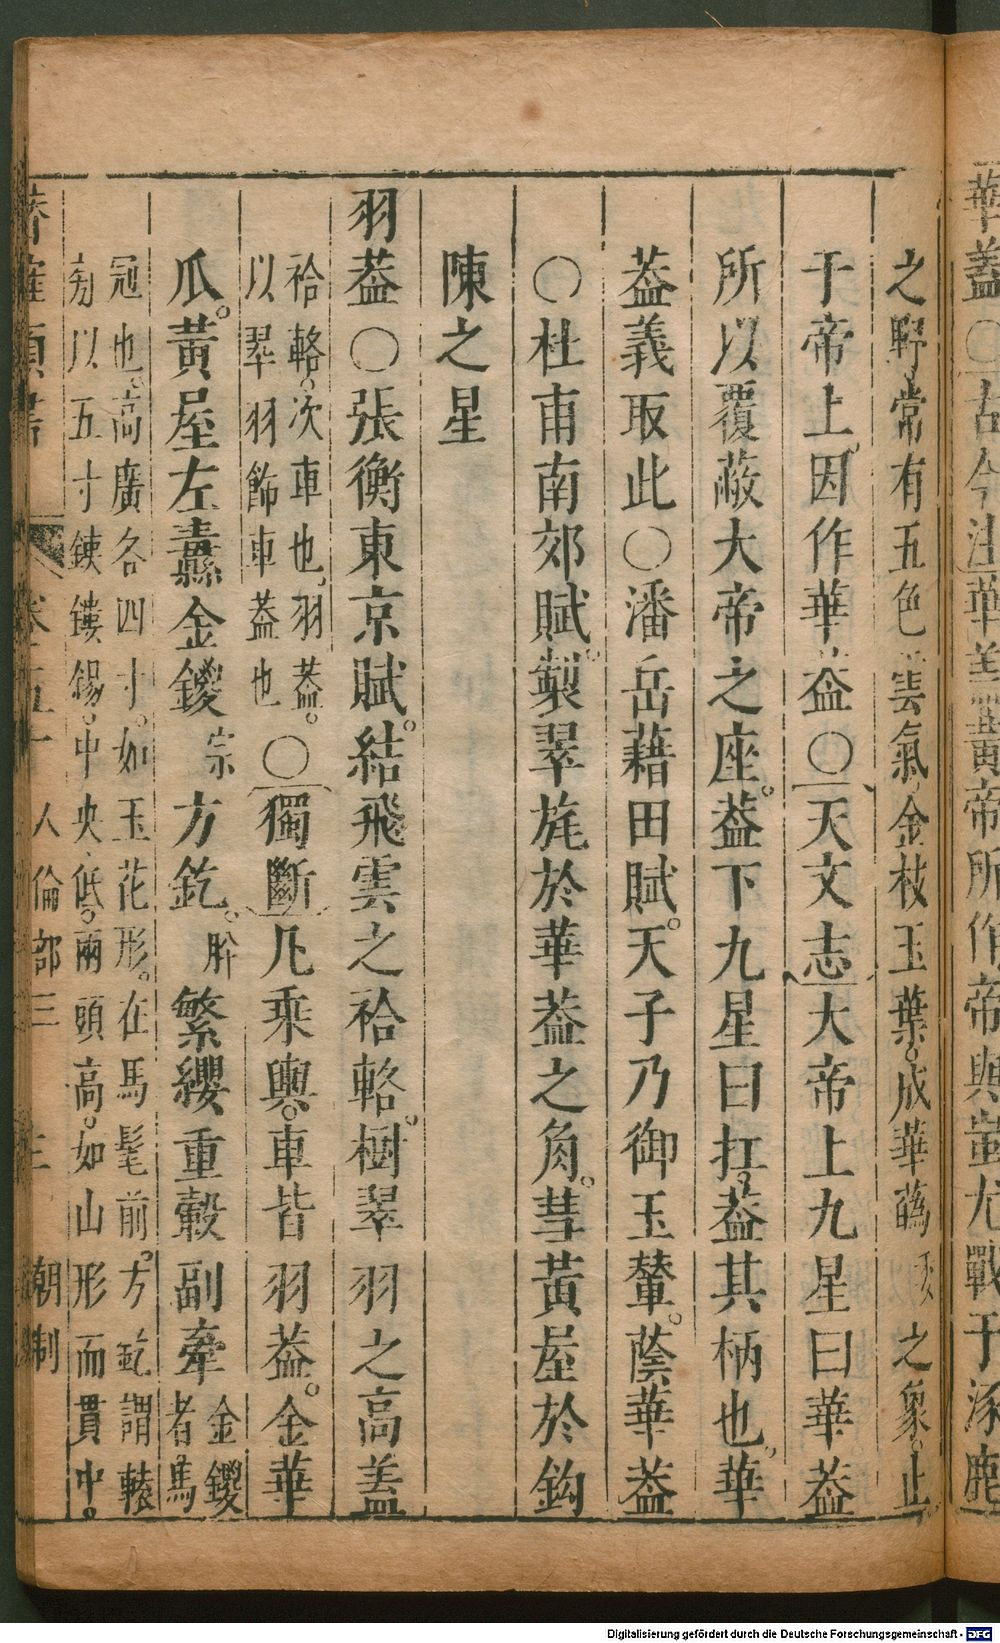 華蓋○古今注華蓋黃帝所作帝與蚩尤戰于涿鹿
之野常有五色雲氣金枝玉葉成華蘤之象止
于帝上因作華葢○天文志大帝上九星曰華葢
所以覆蔽大帝之座葢下九星曰扛葢其柄也華
葢義取此○潘岳藉田賦天子乃御玉輦蔭華葢
○杜甫南郊賦製翠旄於華葢之角彗黃屋於鈎
陳之星
羽葢○張衡東京賦結飛雲之袷輅樹翠羽之高蓋
袷輅次車也羽葢
以翠羽飾車葢也○獨斷凡乘輿車皆羽葢金華
瓜黃屋左纛金鑁宗方釳肸繁纓重轂副牽金鑁者馬
冠也高廣各四寸如玉花形在馬髦前方釳謂轅
旁以五寸鐵鏤錫中央低兩頭高如山形而貫中
人倫部三 朝制
Digitalisierung gefördert durch die Deutsche Forschungsgemeinschaft - DFG